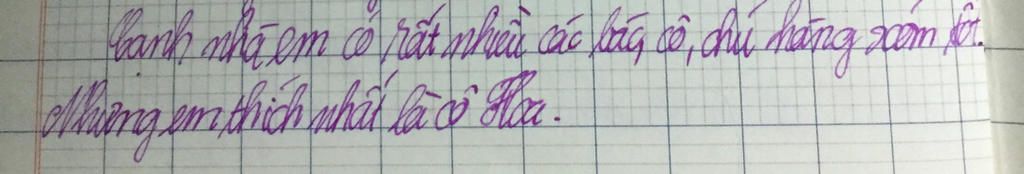 Cạnh nhà em có rất nhiều các bác, cô, chú hàng xóm tốt.
Nhưng em thích nhất là cô Hoa.